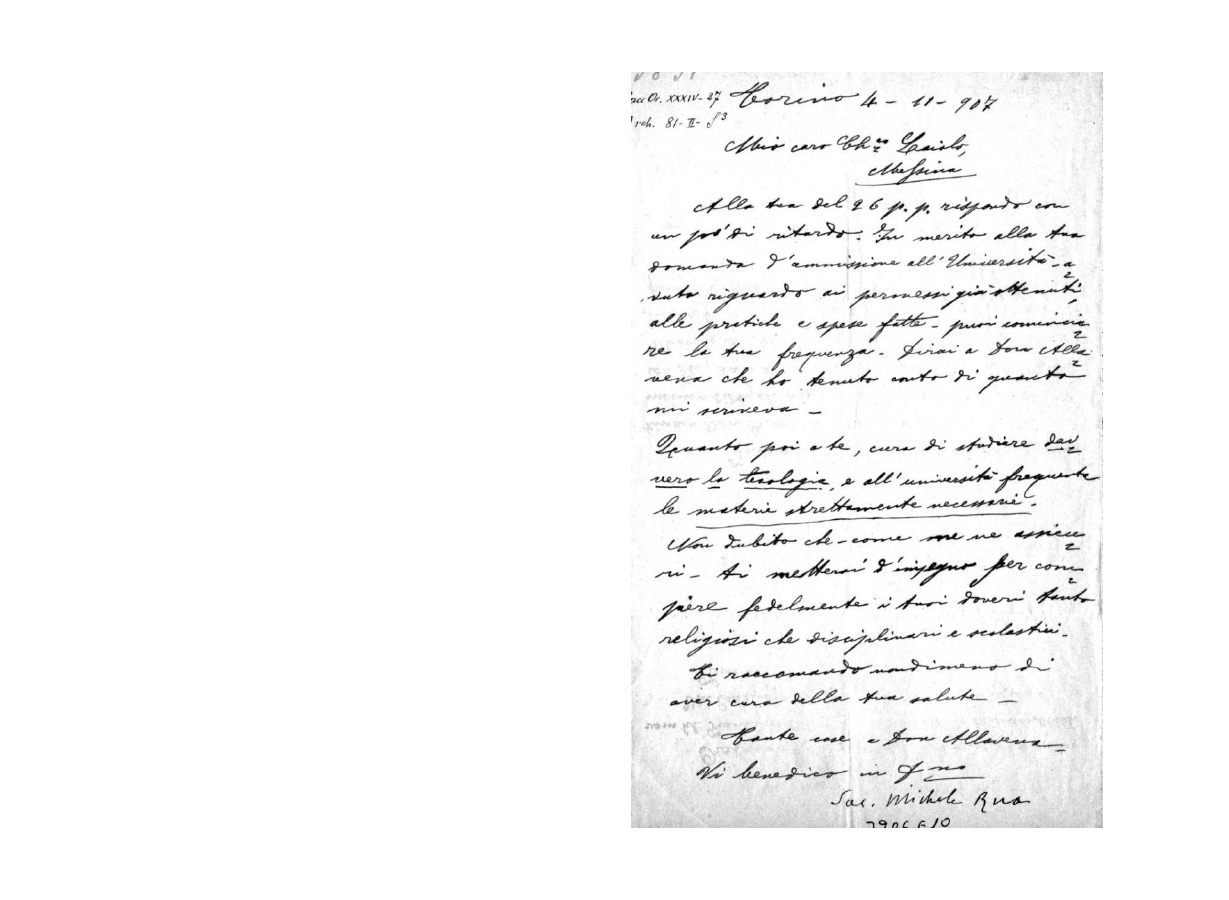 Torino 4 - 11 - 907
Arch. 81-II- S³
Mio caro Ch.co Laiolo,
Messina
Alla tua del 26 p. p. rispondo con
un po' di ritardo. In merito alla tua
domanda d'ammissione all'Università - a=
vuto riguardo ai permessi già ottenuti,
alle pratiche e spese fatte - puoi comincia=
re la tua frequenza. Dirai a Don Alla=
vena che ho tenuto conto di quanto
mi scriveva -
Quanto poi a te, cura di studiare dav=
vero la teologia, e all'università frequenta
le materie strettamente necessarie.
Non dubito che - come me ne assicu=
ri - ti metterai d'impegno per com=
piere fedelmente i tuoi doveri tanto
religiosi che disciplinari e scolastici.
Ti raccomando nondimeno di
aver cura della tua salute -
Tante cose a Don Allavena=
Vi benedico in J no
Sac. Michele Rua